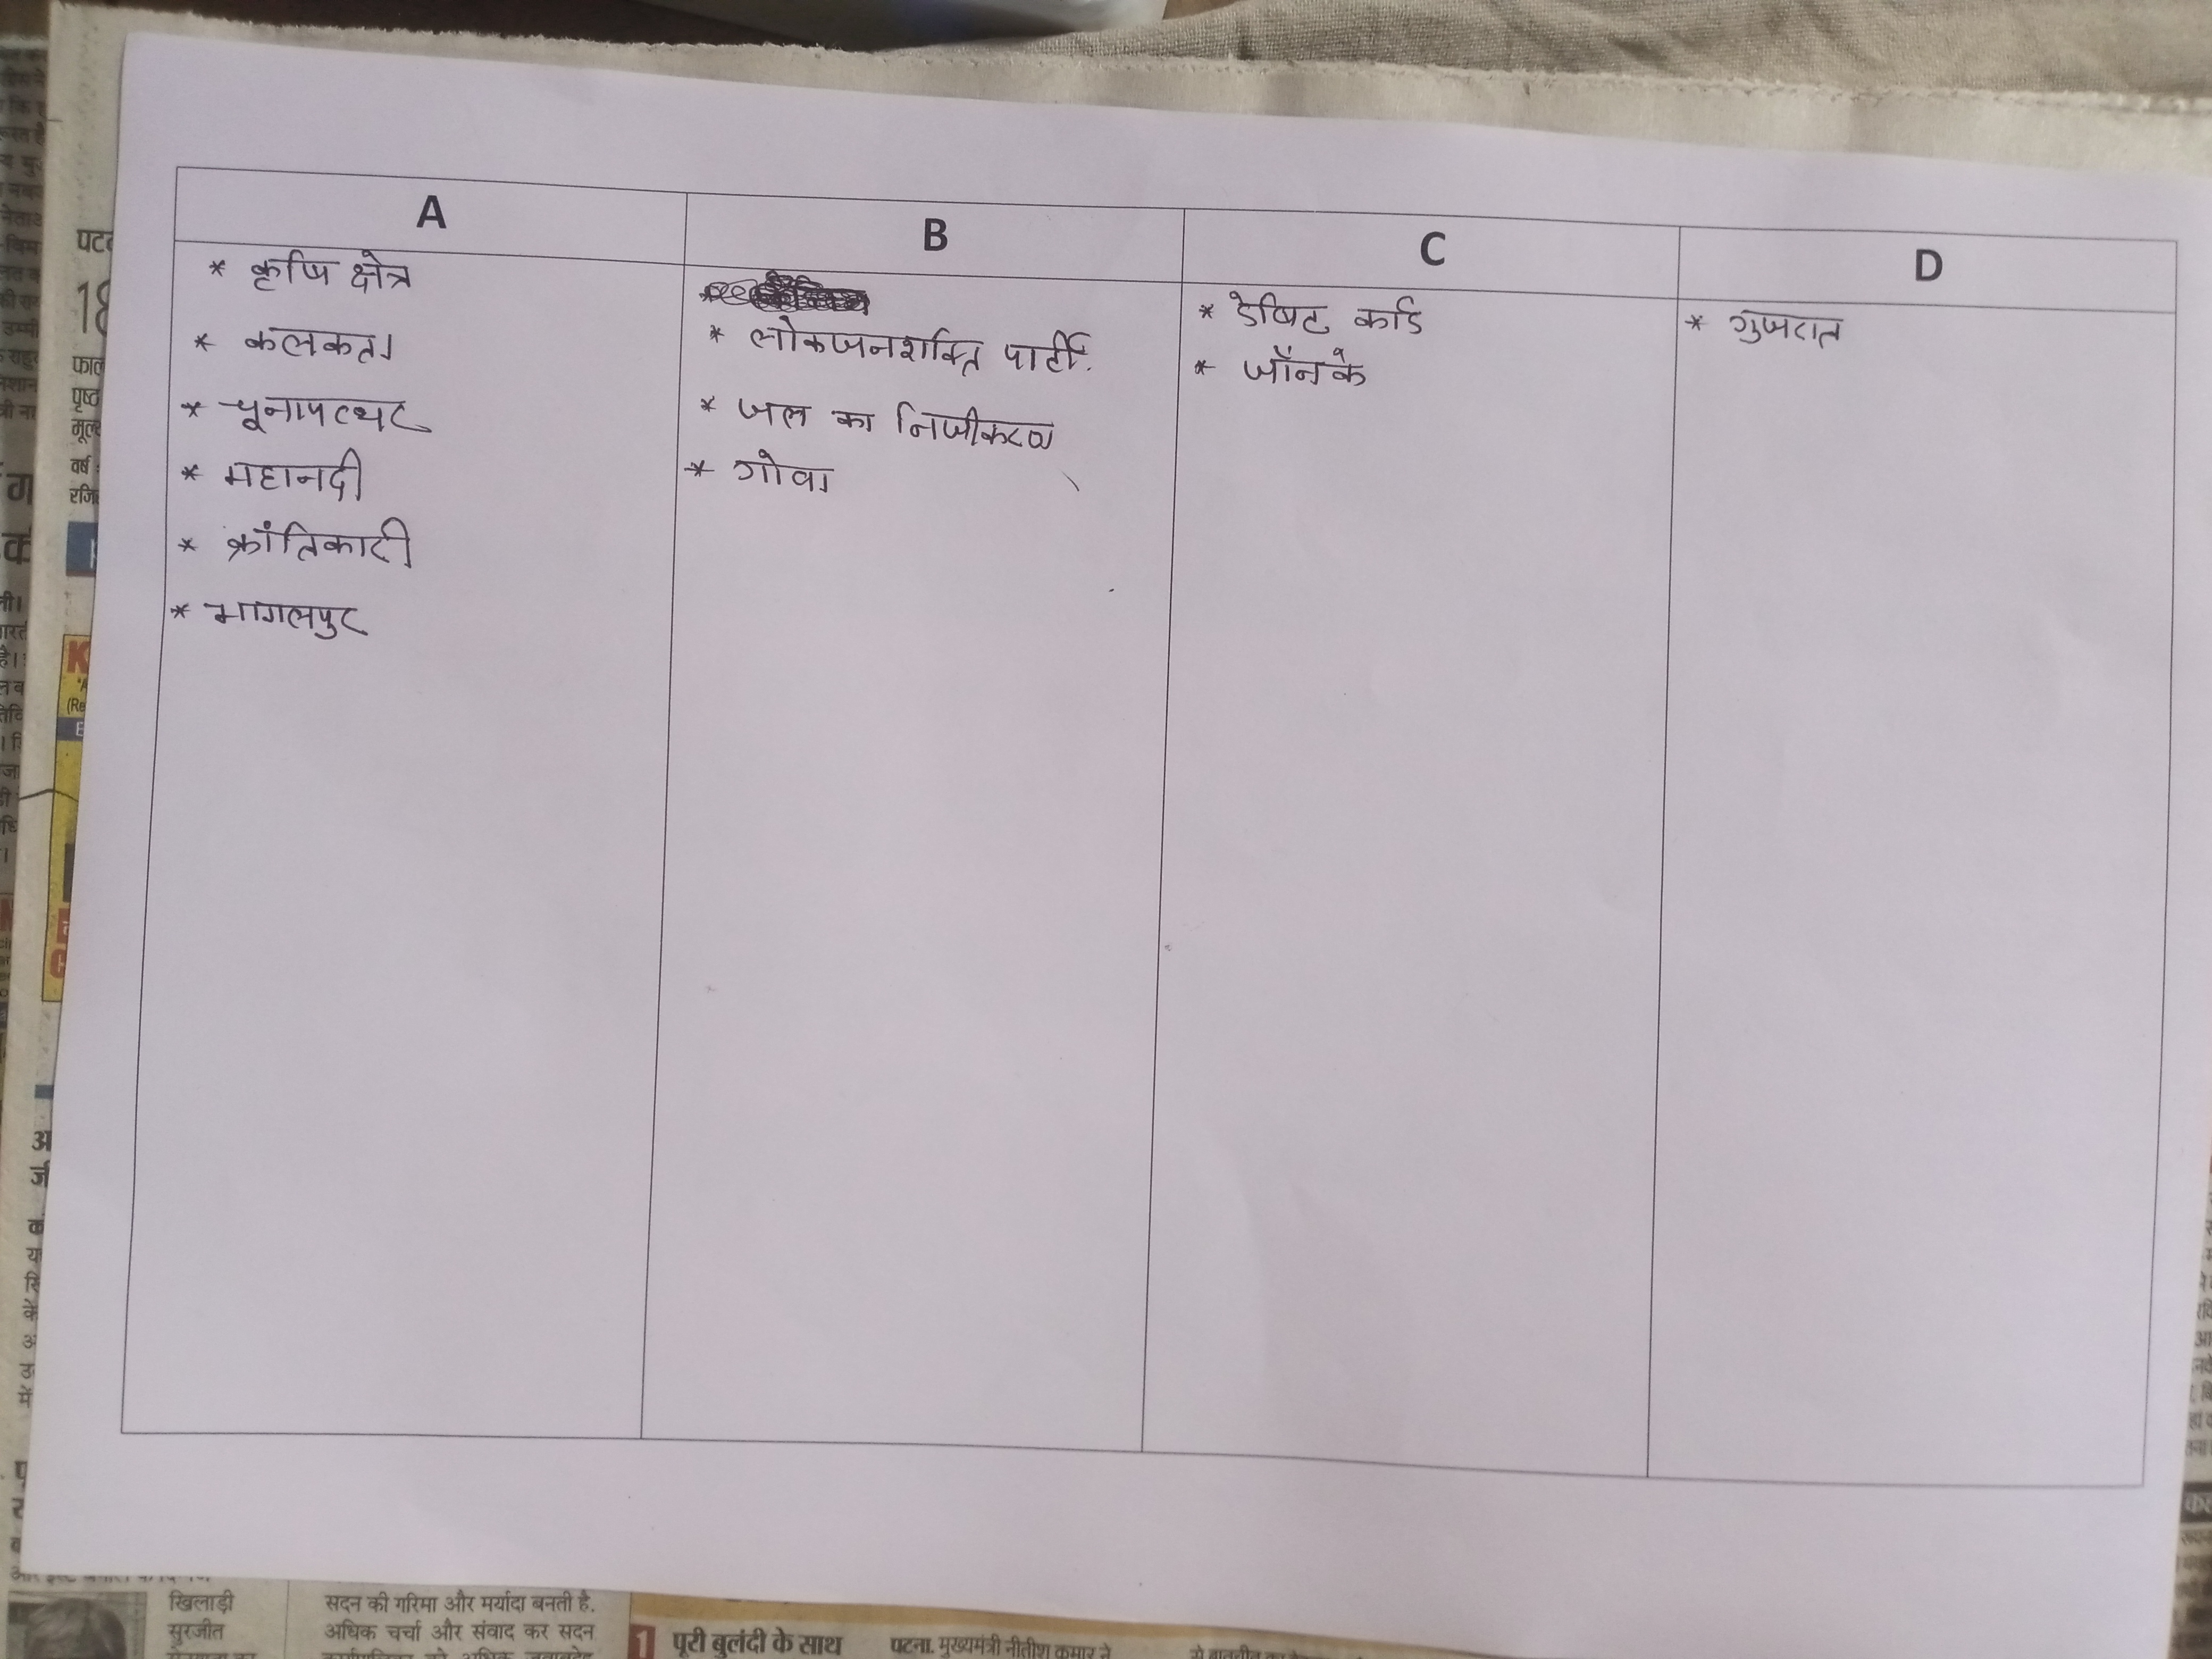 A
* कृषि क्षेत्र
* कलकता
* चूनापत्थर
* महानदी
* क्रांतिकारी
* भागलपुर
B
* लोकजनशक्ति पार्टी.
* जल का निजीकरण
* गोवा
C
* डेबिट कार्ड
* जॉनके
D
* गुजरात
खिलाड़ी
सुरजीत
सदन की गरिमा और मर्यादा बनती है.
अधिक चर्चा और संवाद कर सदन
1 पूरी बुलंदी के साथ
पटना. मुख्यमंत्री नीतीश कुमार ने